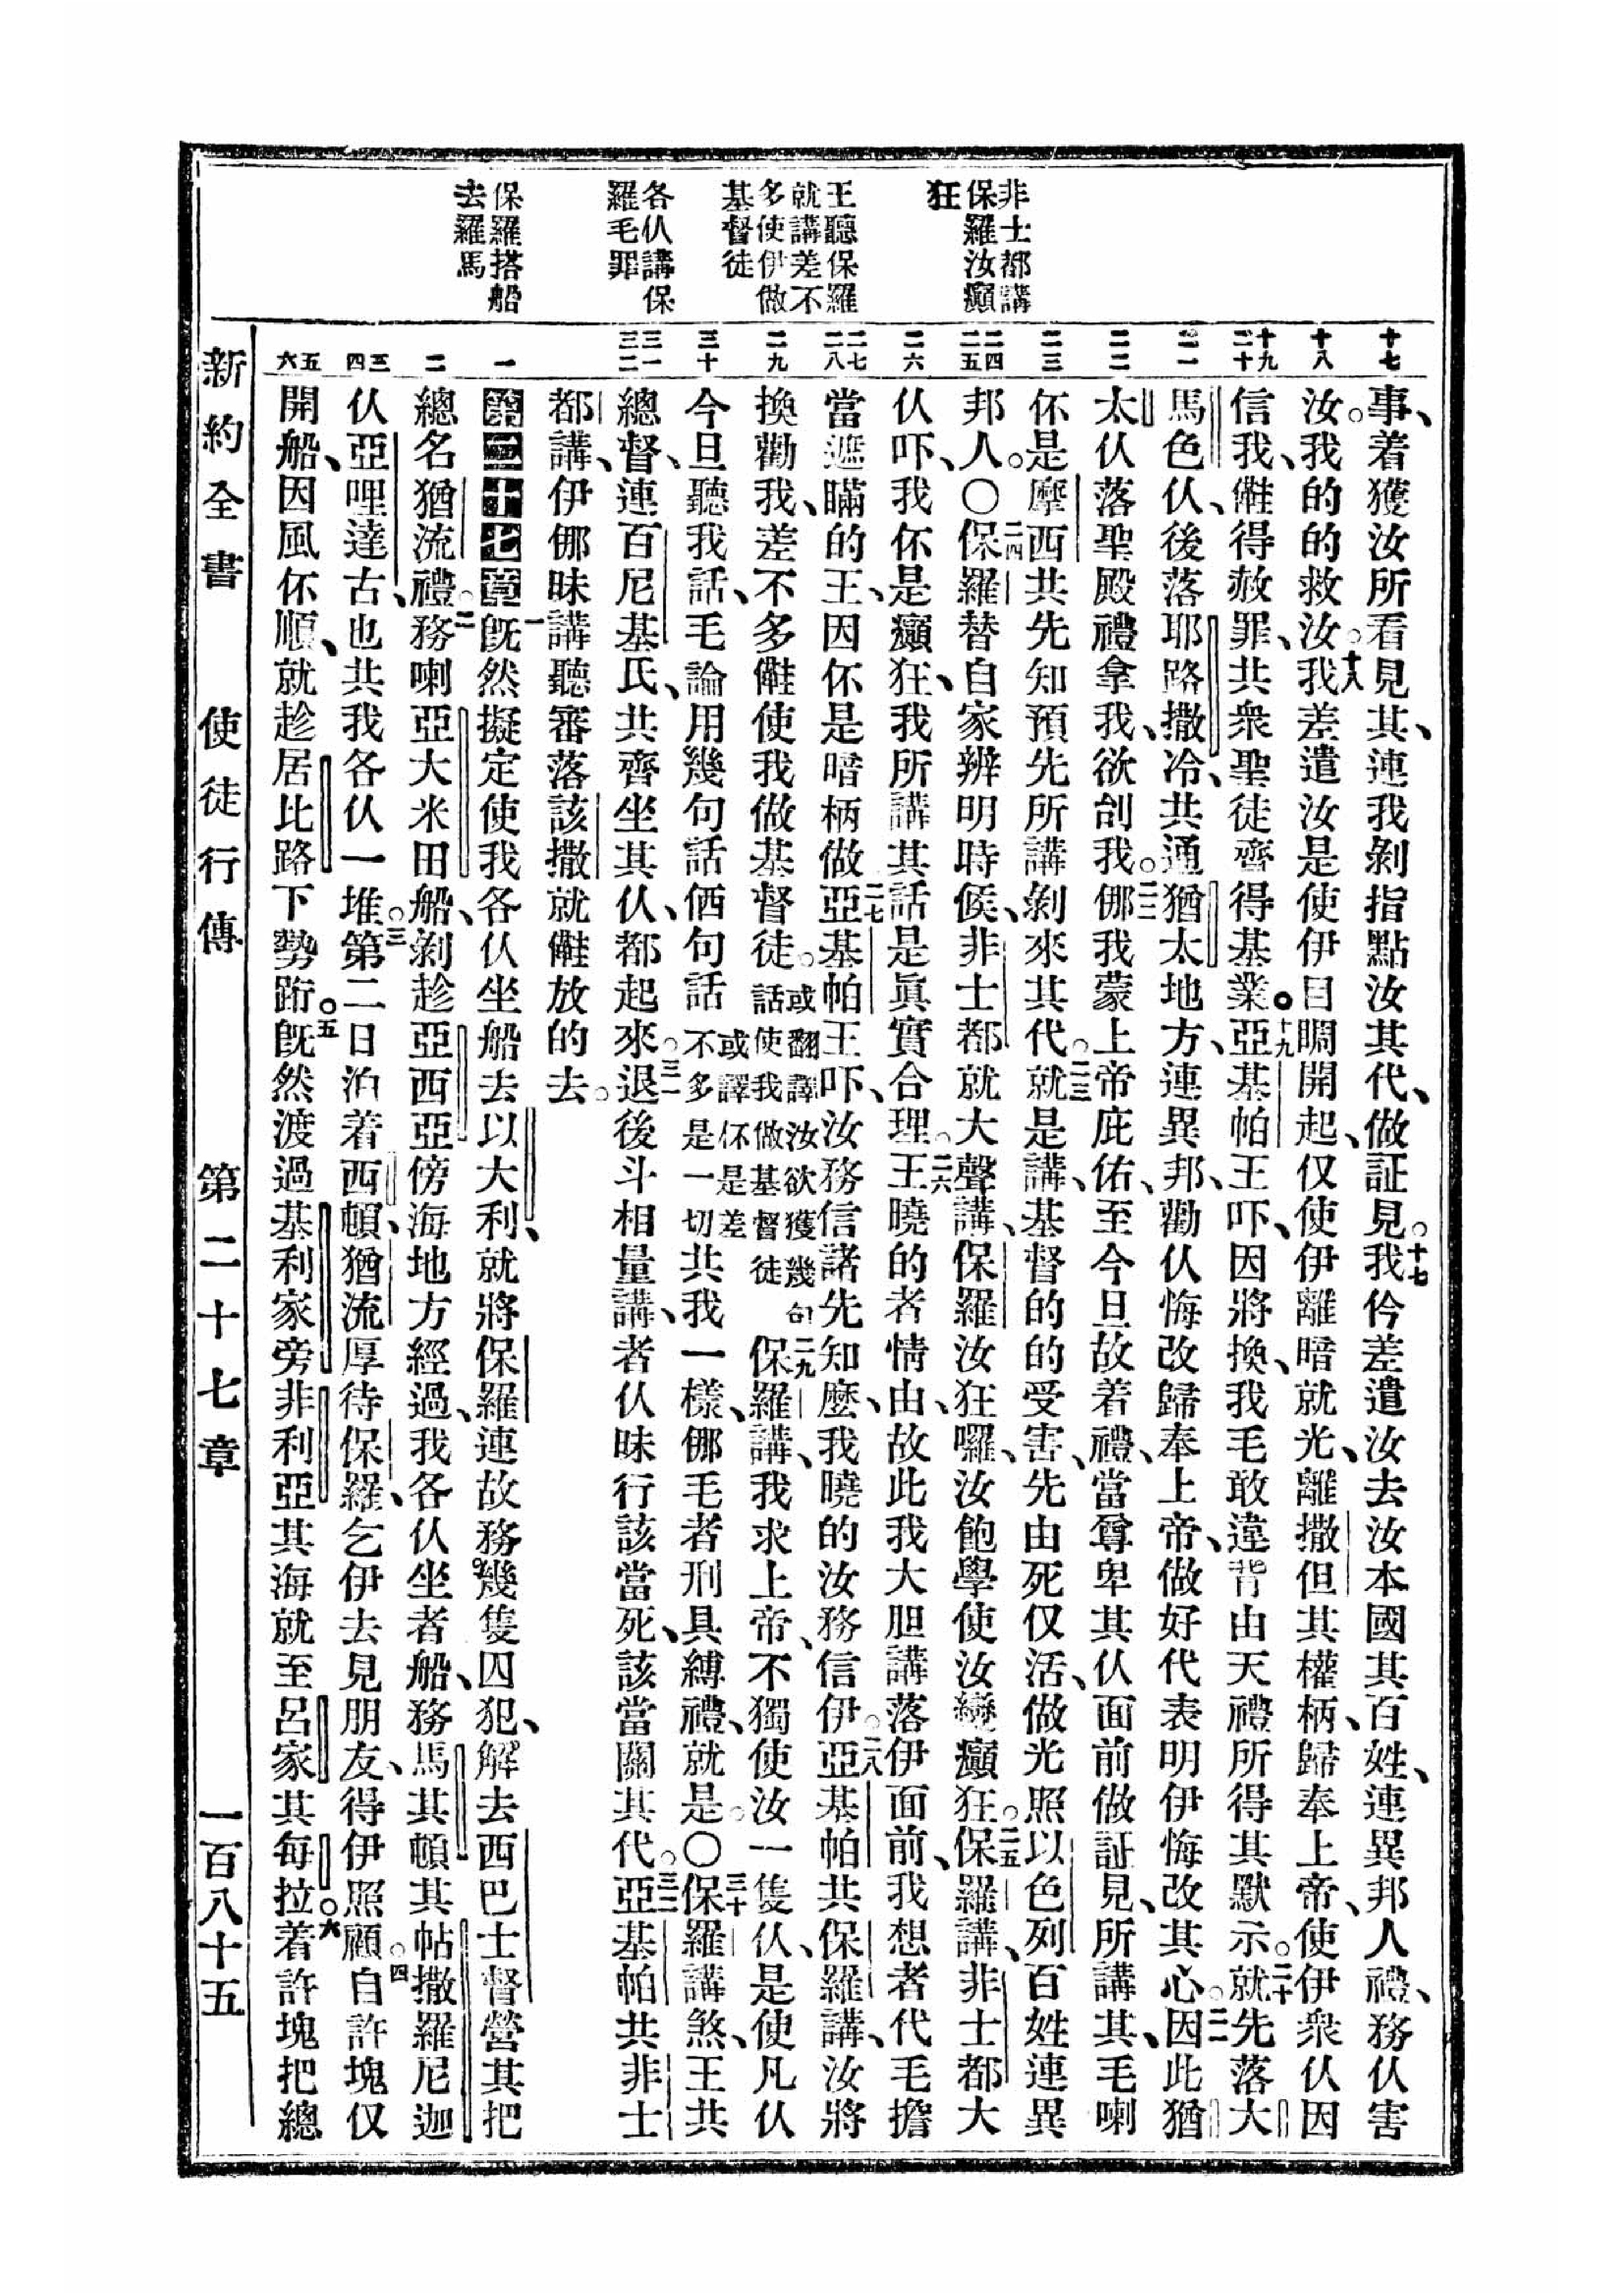 非士都講
保羅汝癲
狂
王聽保羅
就講差不
多使伊做
基督徒
各仈講保
羅毛罪
保羅搭船
去羅馬
十七
十八
十九
二十
二一
二二
二三
二四
二五
二六
二七
二八
二九
三十
三一
三二
一
二
三
四
五
六
事、着獲汝所看見其、連我剝指點汝其代、做証見。十七我仱差遣汝去汝本國其百姓、連異邦人禮、務仈害
汝。我的的救汝。十八我差遣汝是使伊目睭開起、仅使伊離暗就光、離撒但其權柄、歸奉上帝、使伊衆仈因
信我、𣍐得赦罪、共衆聖徒齊得基業。十九亞基帕王吓、因將換、我毛敢違背由天禮所得其默示。二十就先落大
馬色仈、後落耶路撒冷、共通猶太地方、連異邦、勸仈悔改歸奉上帝、做好代表明伊悔改其心。二一因此猶
太仈落聖殿禮拿我、欲刣我。二二𨚫我蒙上帝庇佑、至今旦故着禮、當尊卑其仈面前做証見、所講其、毛喇
伓是摩西共先知預先所講剝來其代。二三就是講、基督的的受害、先由死仅活、做光照以色列百姓連異
邦人。〇二四保羅替自家辨明時候、非士都就大聲講、保羅汝狂囉、汝飽學使汝變癲狂。二五保羅講、非士都大
仈吓、我伓是癲狂、我所講其話是眞實合理。二六王曉的者情由、故此我大胆講落伊面前、我想者代毛擔
當遮瞞的王、因伓是暗柄做。二七亞基帕王吓、汝務信諸先知麽、我曉的汝務信伊。二八亞基帕共保羅講、汝將
換勸我、差不多𣍐使我做基督徒。或翻譯汝欲獲幾句話使我做基督徒二九保羅講、我求上帝、不獨使汝一隻仈、是使凡仈
今旦聽我話、毛論用幾句話伷句話或譯伓是差不多是一切共我一樣、𨚫毛者刑具縛禮、就是。〇三十保羅講煞、王共
總督、連百尼基氏、共齊坐其仈、都起來。三一退後斗相量講、者仈昧行該當死、該當關其代。三二亞基帕共非士
都講、伊𨚫昧講聽審落該撒就𣍐放的去。
第二十七章一旣然擬定使我各仈坐船去以大利、就將保羅連故務幾隻囚犯、解去西巴士督營其把
總名猶流禮。二務喇亞大米田船、剝趁亞西亞傍海地方經過、我各仈坐者船、務馬其頓其帖撒羅尼迦
仈、亞哩達古也共我各仈一堆。三第二日泊着西頓、猶流厚待保羅、乞伊去見朋友、得伊照顧。四自許塊仅
開船、因風伓順、就趁居比路下勢𨀣。五旣然渡過基利家旁非利亞其海就至呂家其每拉。六着許塊把總
新約全書　使徒行傳　第二十七章　一百八十五